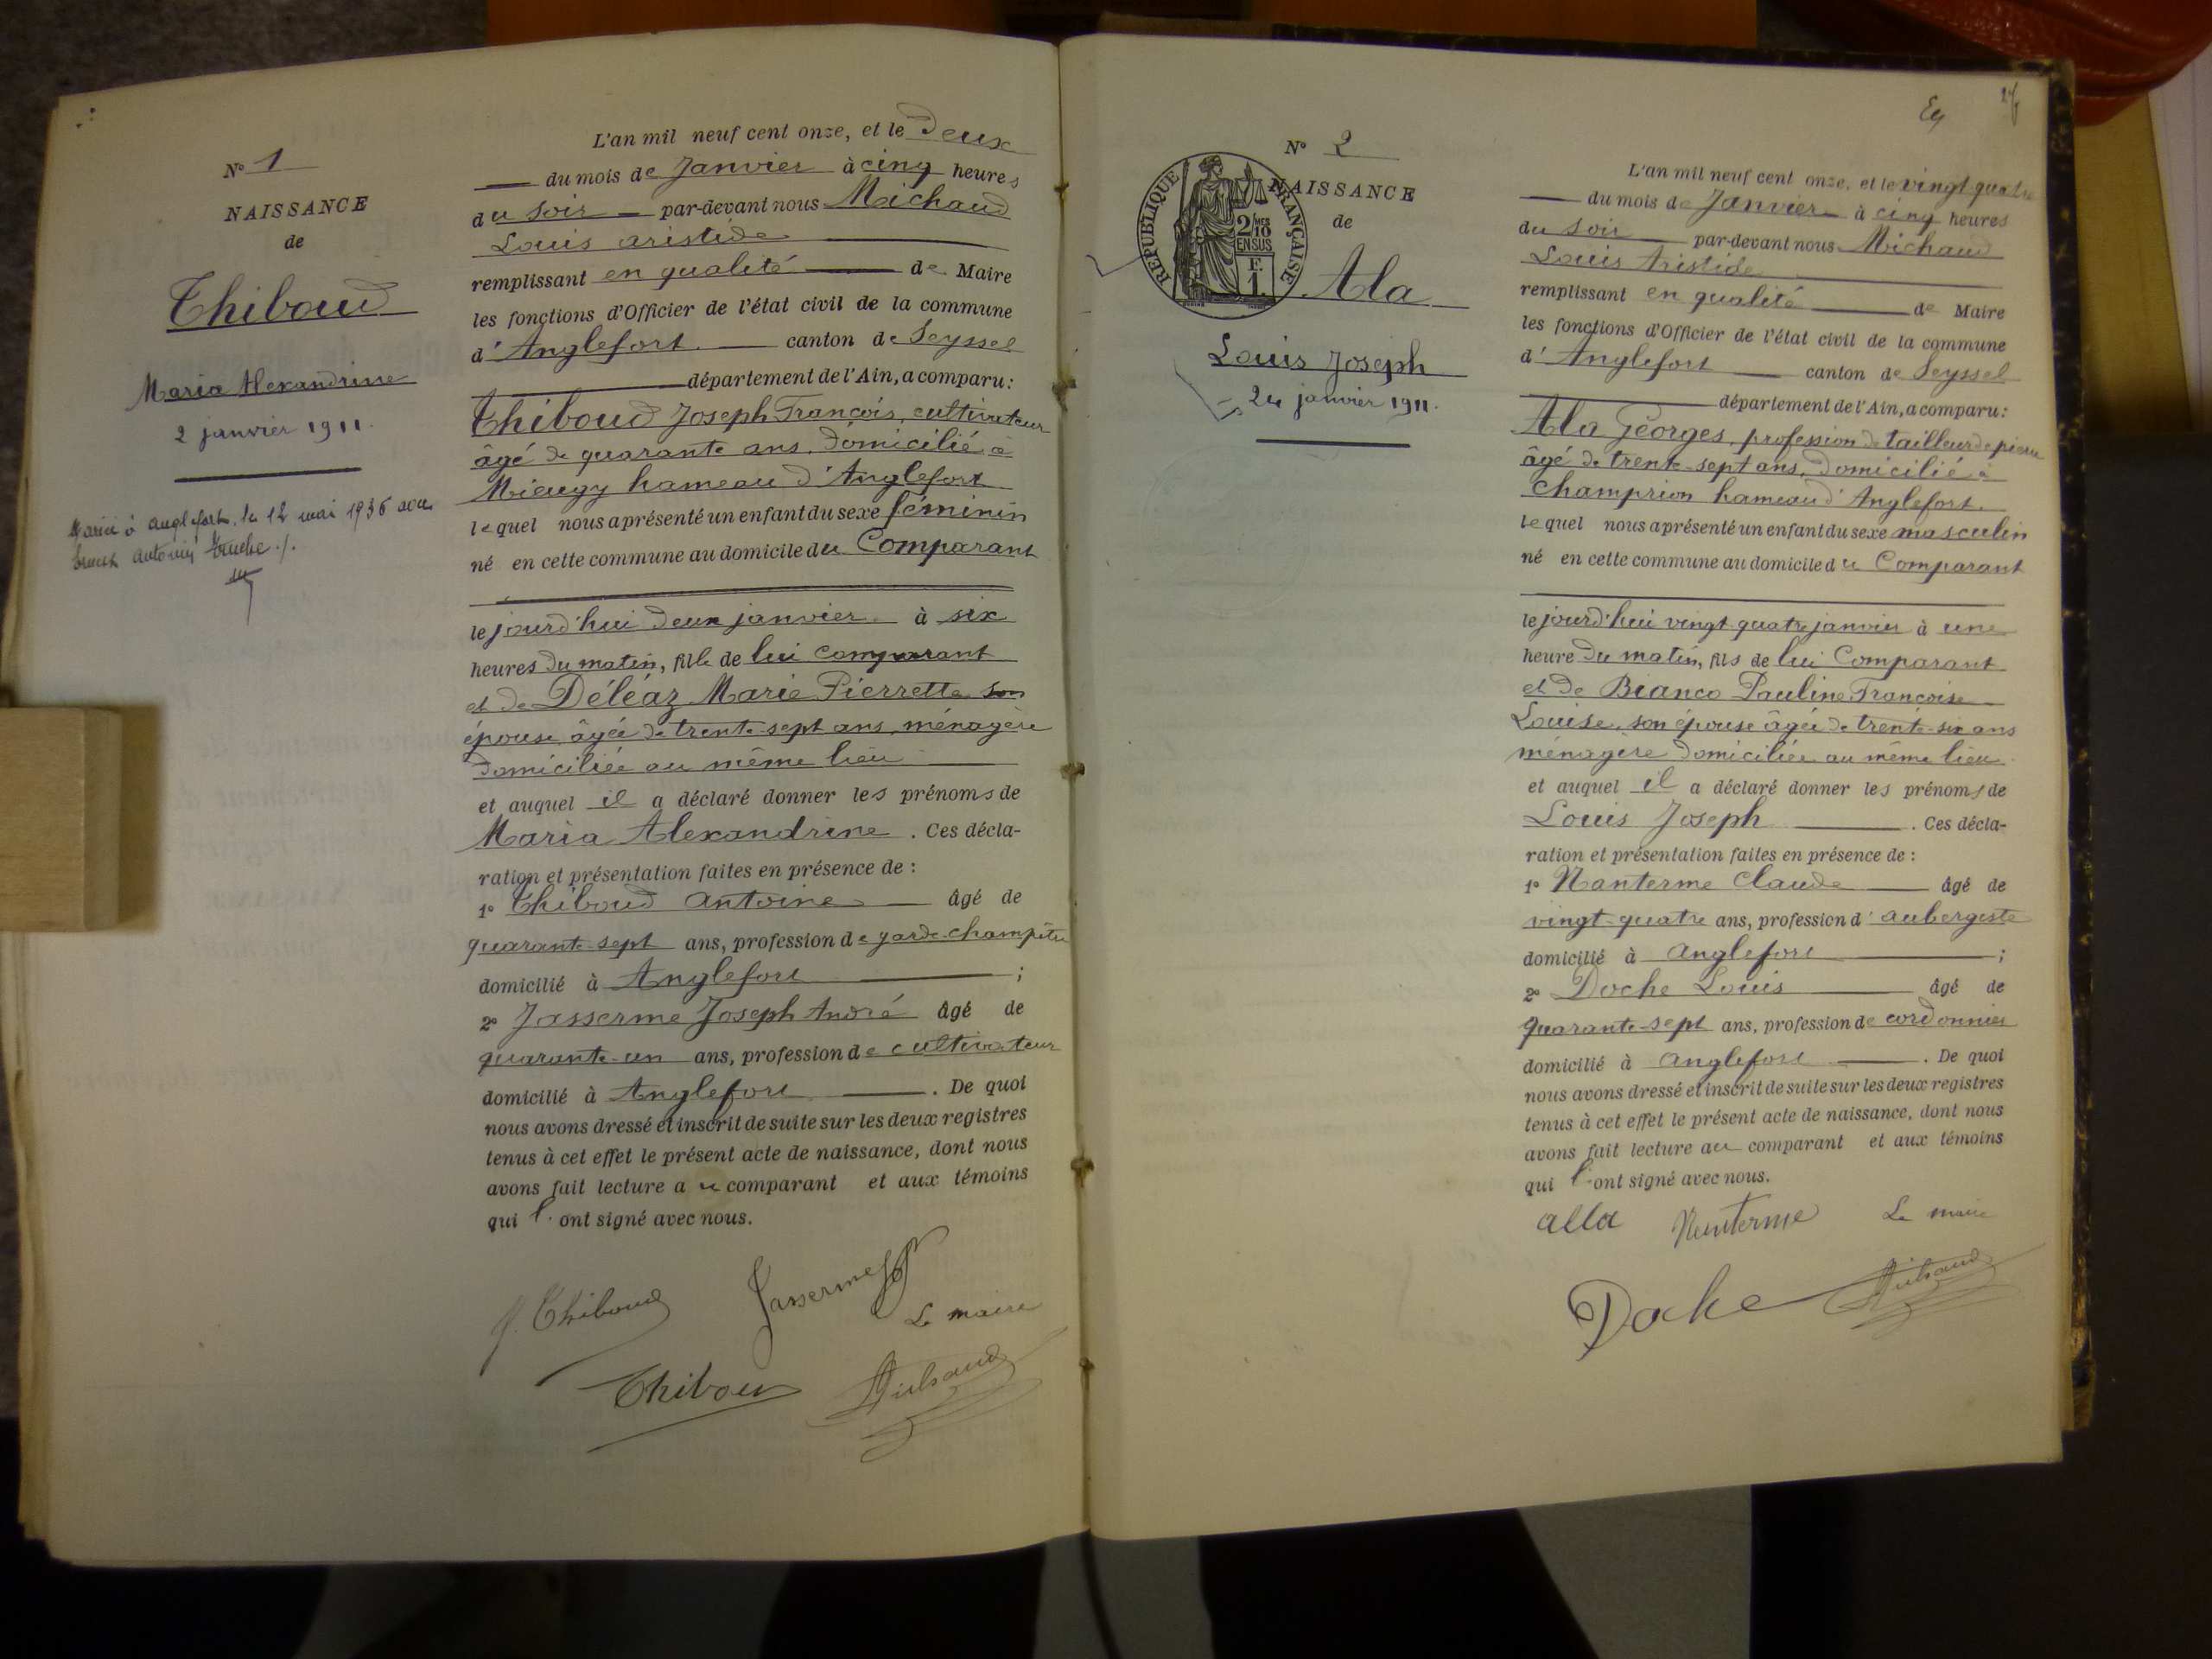 N° 1
NAISSANCE
de
Thiboud
Maria Alexandrine
2 janvier 1911.
à Anglefort, le 12 mai 1936 avec
L'an mil neuf cent onze, et le Deux
du mois de Janvier à cinq heures
du soir par-devant nous Michaud
Louis Aristide
remplissant en qualité de Maire
les fonctions d'Officier de l'état civil de la commune
d'Anglefort canton de Seyssel
département de l'Ain, a comparu:
Thiboud Joseph François, cultivateur
âgé de quarante ans, domicilié à
Mieugy hameau d'Anglefort
lequel nous a présenté un enfant du sexe féminin
né en cette commune au domicile du Comparant
le jourd'hui deux janvier à six
heures du matin, fille de lui comparant
et de Déléaz Marie Pierrette son
épouse, âgée de trente-sept ans, ménagère
domiciliée au même lieu
et auquel il a déclaré donner les prénoms de
Maria Alexandrine. Ces décla-
ration et présentation faites en présence de :
1° Thiboud Antoine âgé de
quarante-sept ans, profession de garde-champêtre
domicilié à Anglefort ;
2° Jasserme Joseph André âgé de
quarante-un ans, profession de cultivateur
domicilié à Anglefort . De quoi
nous avons dressé et inscrit de suite sur les deux registres
tenus à cet effet le présent acte de naissance, dont nous
avons fait lecture au comparant et aux témoins
qui l'ont signé avec nous.
J. Thiboud Jasserme
Le maire
Thiboud Michaud
N° 2
NAISSANCE
de
REPUBLIQUE FRANÇAISE
2 MES 10
EN SUS
F.
1
Ala
Louis Joseph
24 janvier 1911.
L'an mil neuf cent onze, et le vingt quatre
du mois de Janvier à cinq heures
du soir par-devant nous Michaud
Louis Aristide
remplissant en qualité de Maire
les fonctions d'Officier de l'état civil de la commune
d'Anglefort canton de Seyssel
département de l'Ain, a comparu:
Ala Georges, profession de tailleur de pierre
âgé de trente-sept ans, domicilié à
Champrion hameau d'Anglefort.
lequel nous a présenté un enfant du sexe masculin
né en cette commune au domicile du Comparant
le jourd'hui vingt-quatre janvier à une
heure du matin, fils de lui Comparant
et de Bianco Pauline Françoise
Louise, son épouse âgée de trente-six ans
ménagère domiciliée au même lieu.
et auquel il a déclaré donner les prénoms de
Louis Joseph . Ces décla-
ration et présentation faites en présence de :
1° Nanterme Claude âgé de
vingt-quatre ans, profession d'aubergiste
domicilié à Anglefort ;
2° Doche Louis âgé de
quarante-sept ans, profession de cordonnier
domicilié à Anglefort . De quoi
nous avons dressé et inscrit de suite sur les deux registres
tenus à cet effet le présent acte de naissance, dont nous
avons fait lecture au comparant et aux témoins
qui l'ont signé avec nous.
alla Nanterme Le maire
Doche Michaud